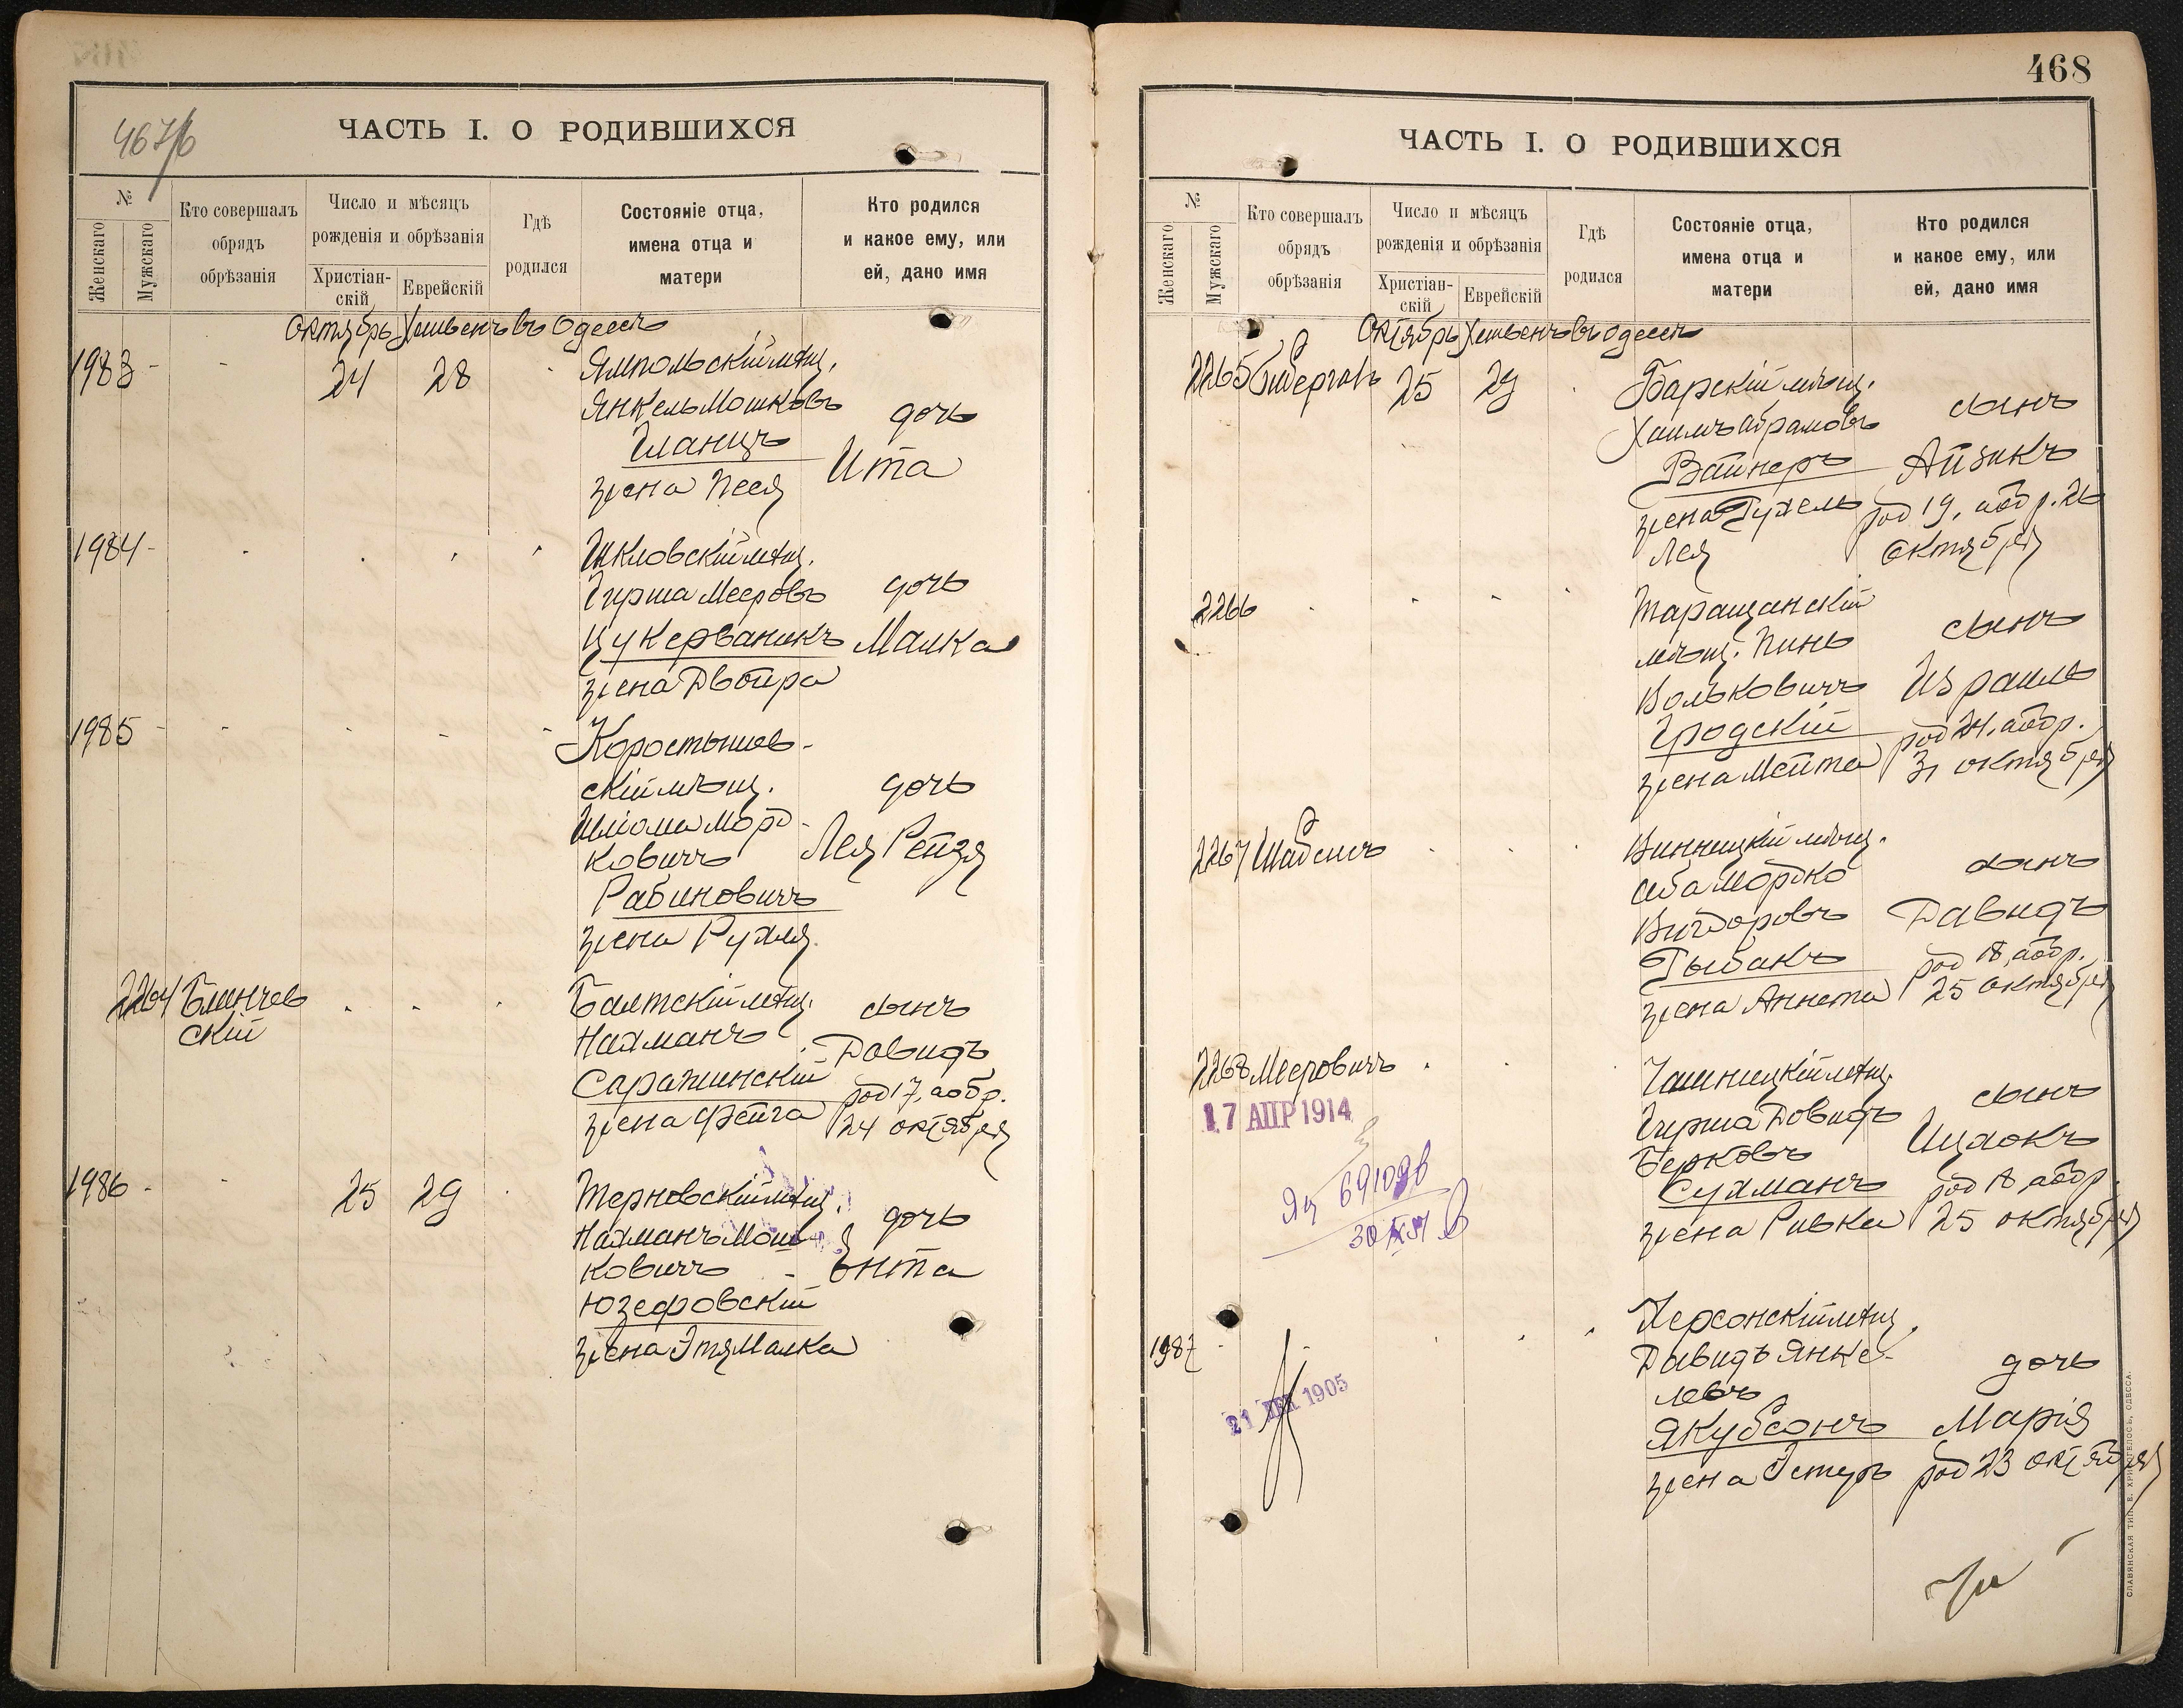 467/б
ЧАСТЬ I. О РОДИВШИХСЯ
№
Женскаго
Мужскаго
Кто совершалъ
обрядъ
обрѣзанія
Число и мѣсяцъ
рожденія и обрѣзанія
Христіан-
скій
Еврейскій
Гдѣ
родился
Состояніе отца,
имена отца и
матери
Кто родился
и какое ему, или
ей, дано имя
Октябрь Хешвенъ въ Одессѣ
1983 - - 24 28 Ямпольскій мѣщ.
Янкель Мошковъ дочь
Гланцъ
жена Песя Ита
1984 - Шкловскій мѣщ.
Гирша Мееровъ дочь
Цукерваникъ Малка
жена Двойра
1985 - - Коростышев-
скій мѣщ. дочь
Шлiома Морд-
ковичъ Лея Рейзя
Рабиновичъ
жена Рухля.
2264 Блинчев Балтскій мѣщ. сынъ
скій Нахманъ Давидъ
Саражинскій род 17, а обр.
жена Фейга 24 октября
1986 - - 25 29 Терновскій мѣщ. дочь
Нахманъ Мош-
ковичъ - Энта
Юзефовскій
жена Этя Малка
468
ЧАСТЬ I. О РОДИВШИХСЯ
№
Женскаго
Мужскаго
Кто совершалъ
обрядъ
обрѣзанія
Число и мѣсяцъ
рожденія и обрѣзанія
Христіан-
скій
Еврейскій
Гдѣ
родился
Состояніе отца,
имена отца и
матери
Кто родился
и какое ему, или
ей, дано имя
Октябрь Хешвенъ въ Одессѣ
2265 25 29 Барскій мѣщ.
Хаимъ Абрамовъ сынъ
Вайнеръ Айзикъ
жена Рухель род 19, а обр. 26
Лея октября
2266 Таращанскій
мѣщ. Пинь сынъ
Вольковичъ Израиль
Гродскій род 24, а обр.
жена Мейта 31 октября
2267 Шабсисъ Винницкій мѣщ.
Аба Мордко сынъ
Вигдоровъ Давидъ
Рыбакъ род 18, а обр.
жена Аннета 25 октября
2268 Мееровичъ Чашницкій мѣщ.
17 АПР 1914 Гирша Довидъ сынъ
Берковъ Ицхокъ
Сухманъ род 18, а обр.
жена Ривка 25 октября
691098
1987 - Херсонскій мѣщ.
Давидъ Янке- дочь
левъ
21 1905 Якубсонъ Марія
жена Эстеръ род 23 октября
СЛАВЯНСКАЯ ТИП. Е. ХРИСОГЕЛОСЪ, ОДЕССА.